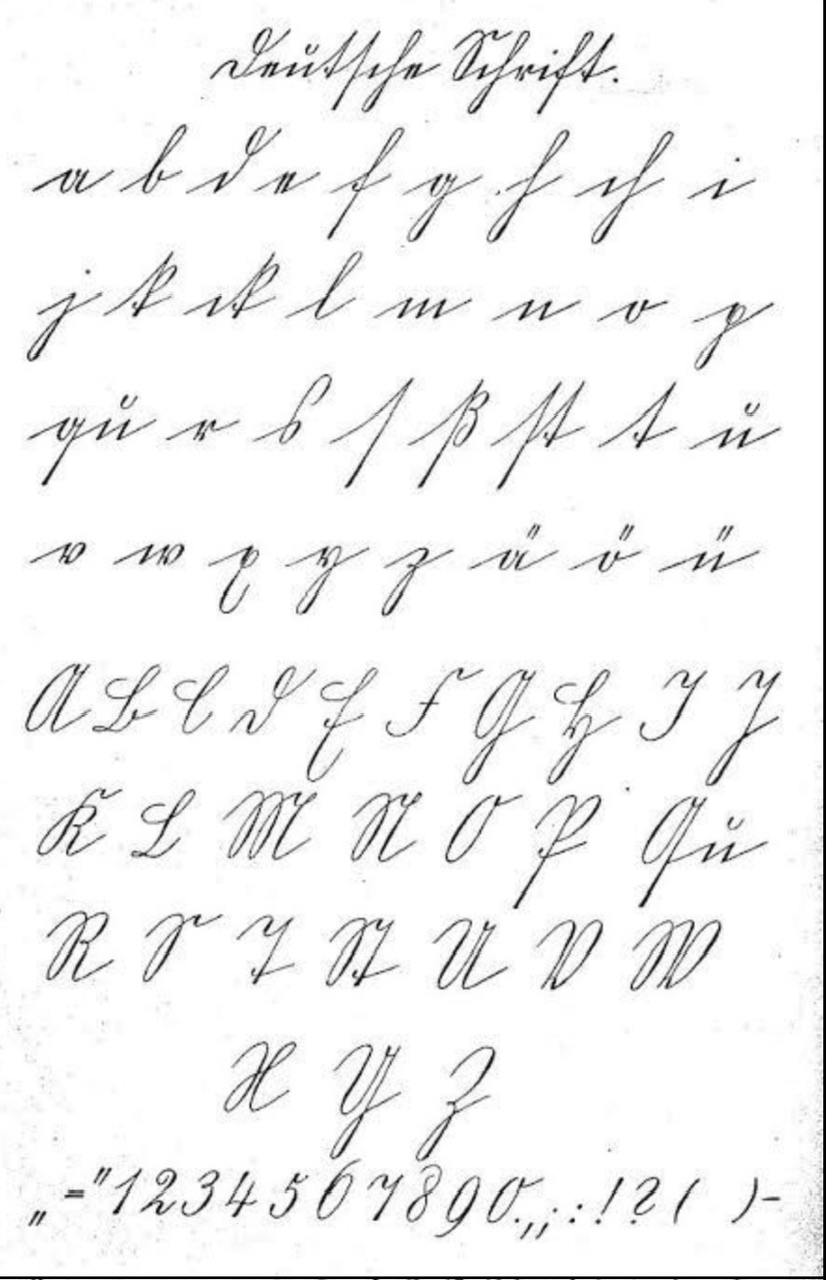 Deutsche Schrift.
a b d e f g h ch i
j k ck l m n o p
qu r s ſ ß ſt t u
v w x y z ä ö ü
A B C D E F G H I J
K L M N O P Qu
R S T St U V W
X Y Z
„ =" 1 2 3 4 5 6 7 8 9 0 . , ; : ! ? ( ) -